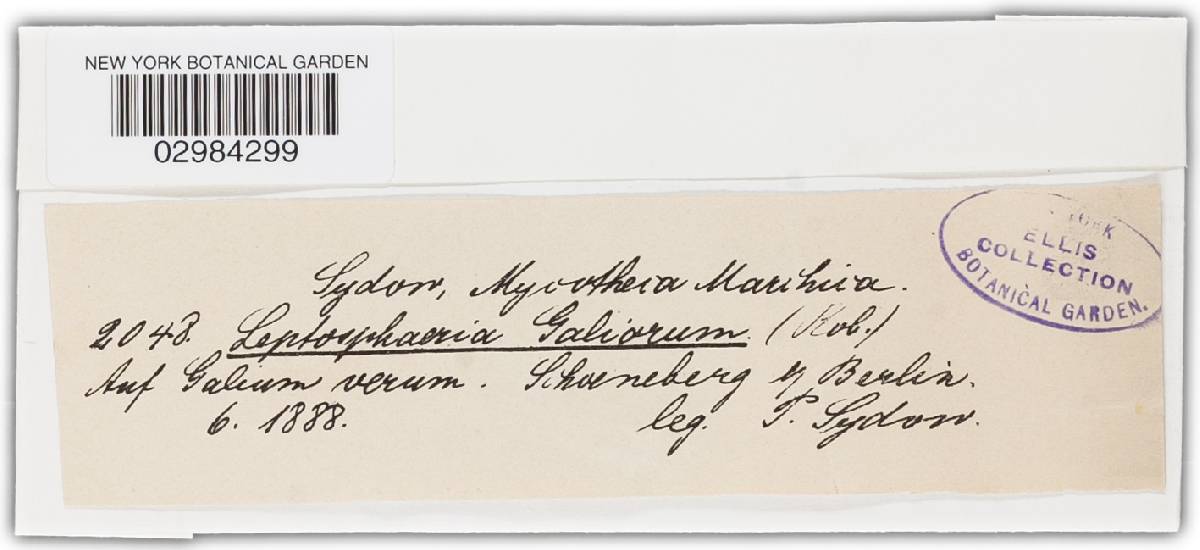 NEW YORK BOTANICAL GARDEN
02984299
YORK
ELLIS
COLLECTION
BOTANICAL GARDEN.
Sydow, Mycotheca Marchica.
2048. Leptosphaeria Galiorum (Rob.)
Auf Galium verum. Schoeneberg b/ Berlin.
6. 1888. leg. P. Sydow.